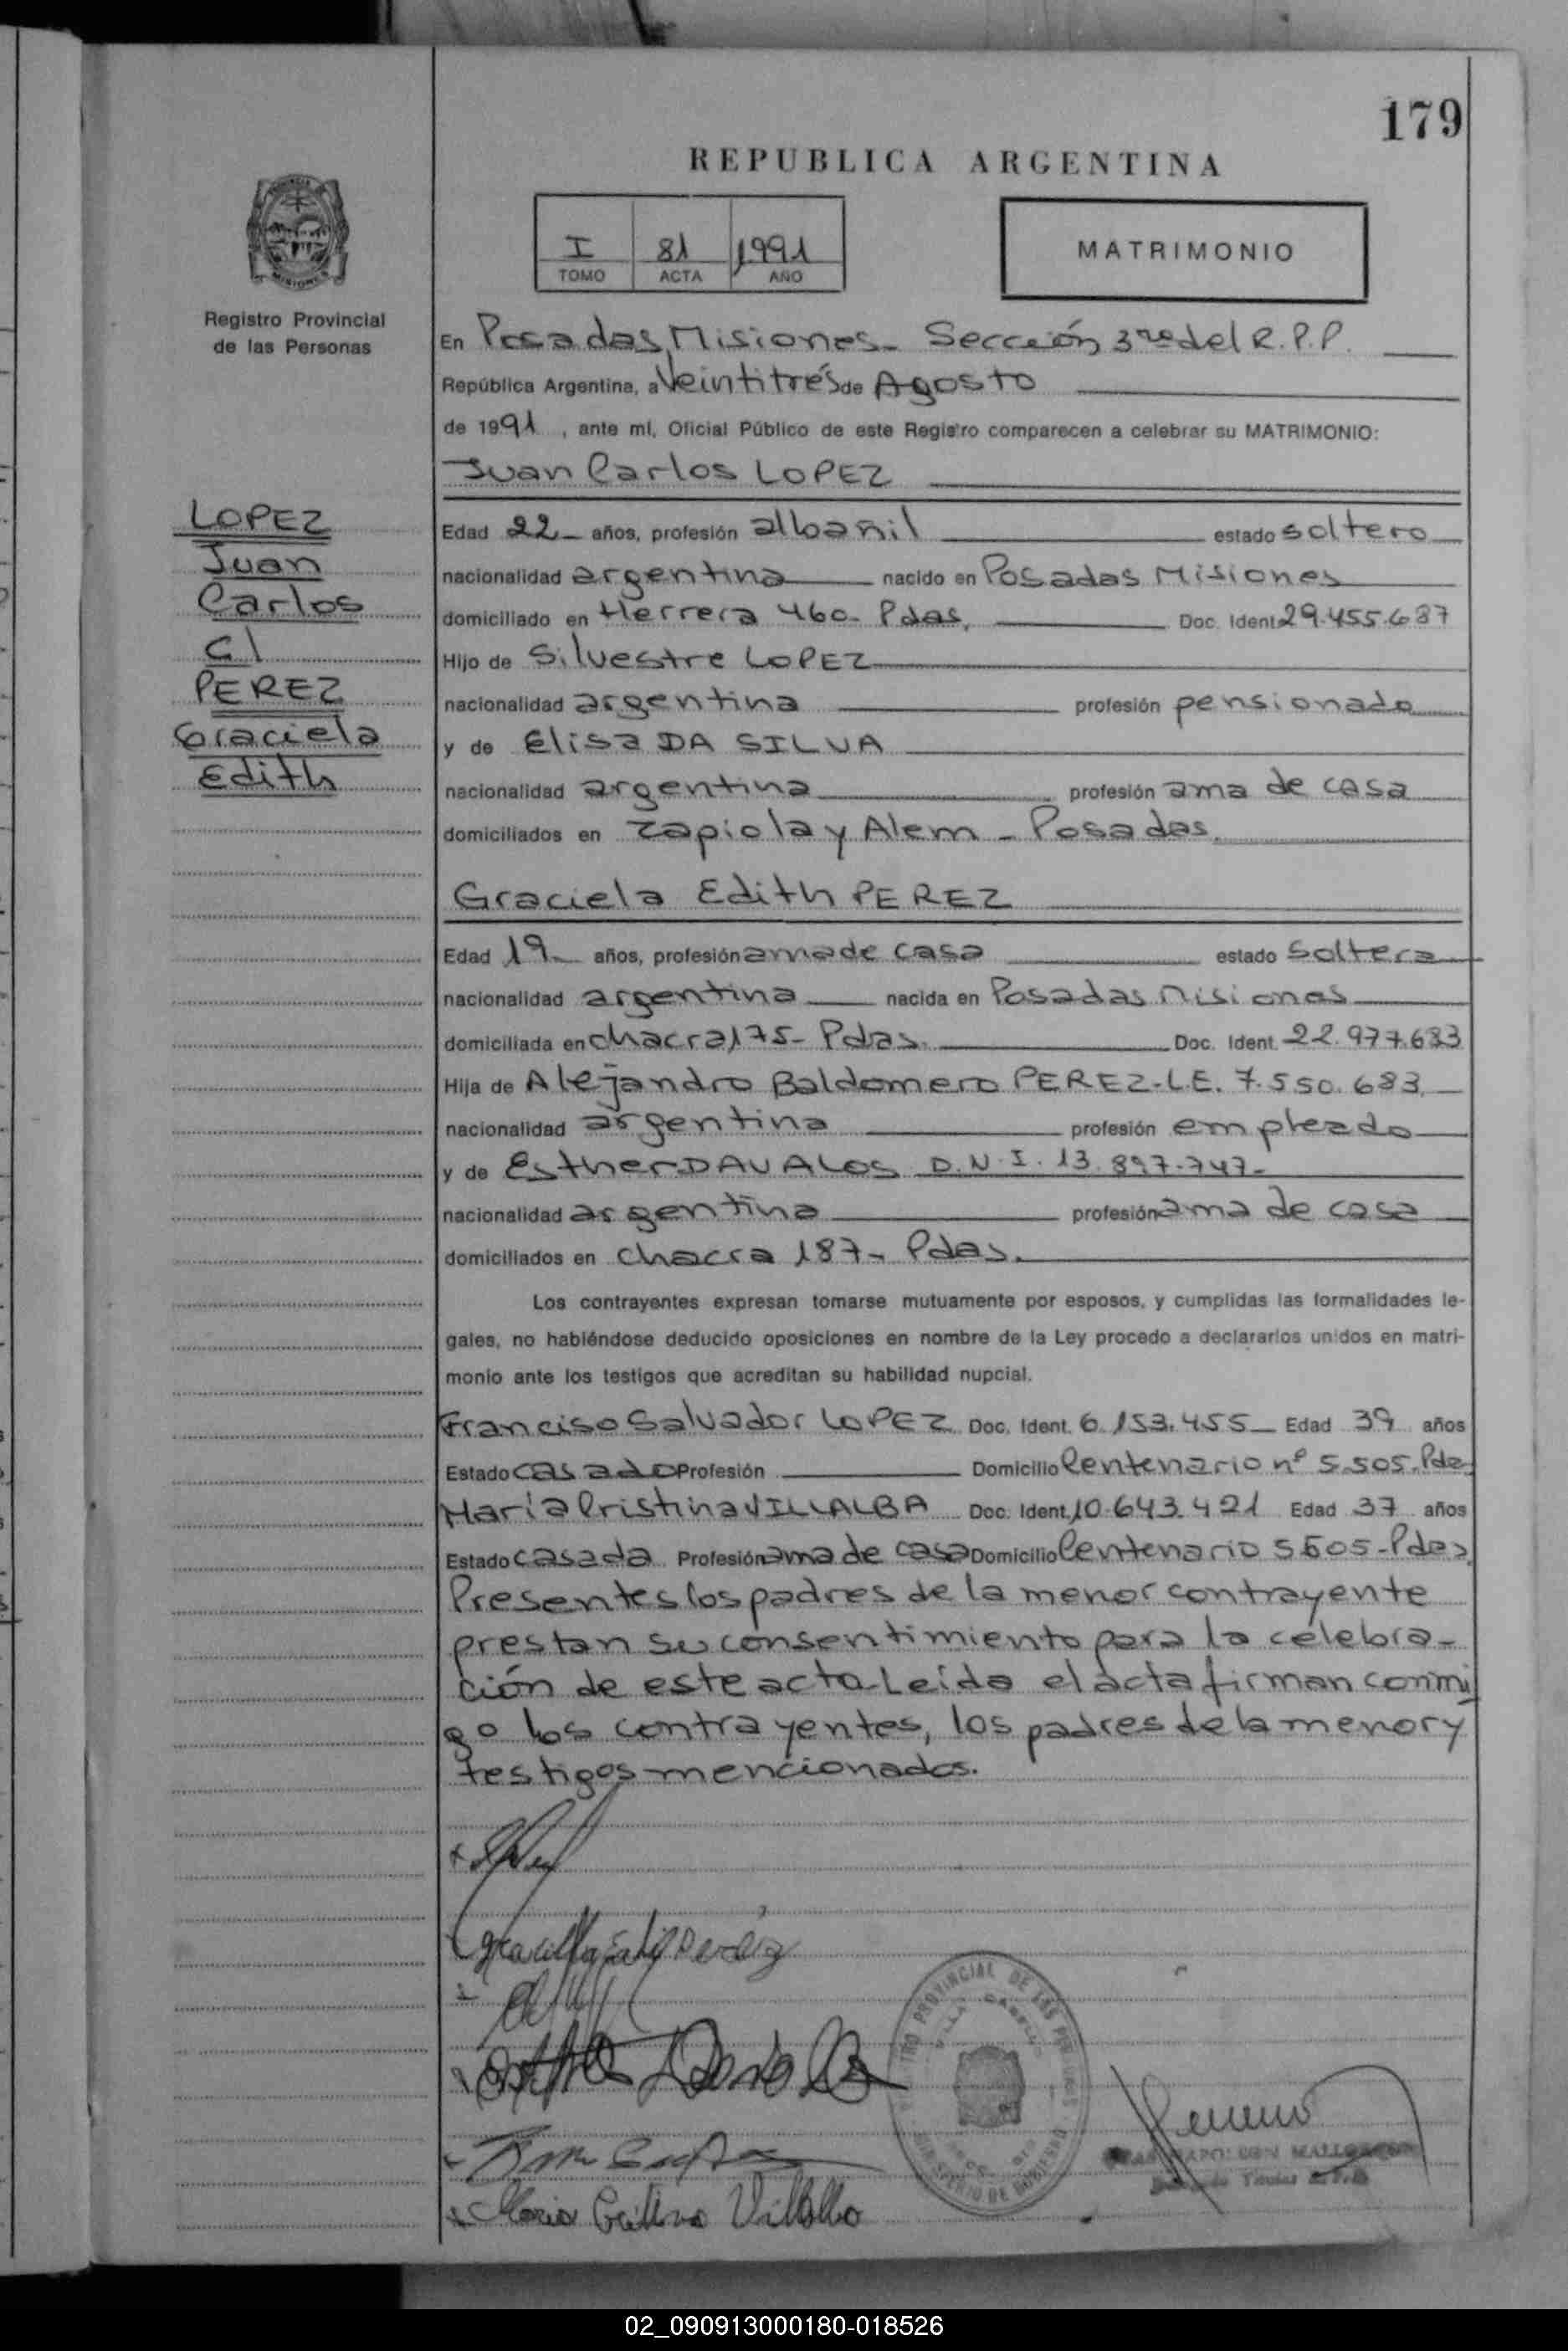 179
REPUBLICA ARGENTINA
I 81 1991
TOMO ACTA AÑO
MATRIMONIO
PROVINCIA
MISIONES
Registro Provincial
de las Personas
En Posadas, Misiones- Sección 3ra del R.P.P.
República Argentina, a Veintitrés de Agosto
de 1991, ante mí, Oficial Público de este Registro comparecen a celebrar su MATRIMONIO:
Juan Carlos LOPEZ
LOPEZ
Juan
Carlos
C/
PEREZ
Graciela
Edith
Edad 22- años, profesión albañil estado soltero
nacionalidad argentina nacido en Posadas Misiones
domiciliado en Herrera 460- Pdas, Doc. Ident. 29.455.687
Hijo de Silvestre LOPEZ
nacionalidad argentina profesión pensionado
y de Elisa DA SILVA
nacionalidad argentina profesión ama de casa
domiciliados en Zapiola y Alem - Posadas.
Graciela Edith PEREZ
Edad 19- años, profesión ama de casa estado soltera
nacionalidad argentina nacida en Posadas Misiones
domiciliada en chacra 175- Pdas. Doc. Ident. 22.977.633
Hija de Alejandro Baldomero PEREZ-L.E. 7.550.683.
nacionalidad argentina profesión empleado
y de Esther DAVALOS D.N.I. 13.897.747-
nacionalidad argentina profesión ama de casa
domiciliados en chacra 187- Pdas.
Los contrayentes expresan tomarse mutuamente por esposos, y cumplidas las formalidades le-
gales, no habiéndose deducido oposiciones en nombre de la Ley procedo a declararlos unidos en matri-
monio ante los testigos que acreditan su habilidad nupcial.
Franciso Salvador LOPEZ Doc. Ident. 6.153.455- Edad 39 años
Estado casado Profesión Domicilio Centenario nº 5.505-Pdas
María Cristina VILLALBA Doc. Ident. 10.643.421 Edad 37 años
Estado casada Profesión ama de casa Domicilio Centenario 5505-Pdas.
Presentes los padres de la menor contrayente
prestan su consentimiento para la celebra-
ción de este acto-Leída el acta firman conmi
go los contrayentes, los padres de la menor y
testigos mencionados.
Maria Cristina Villalba
02_090913000180-018526